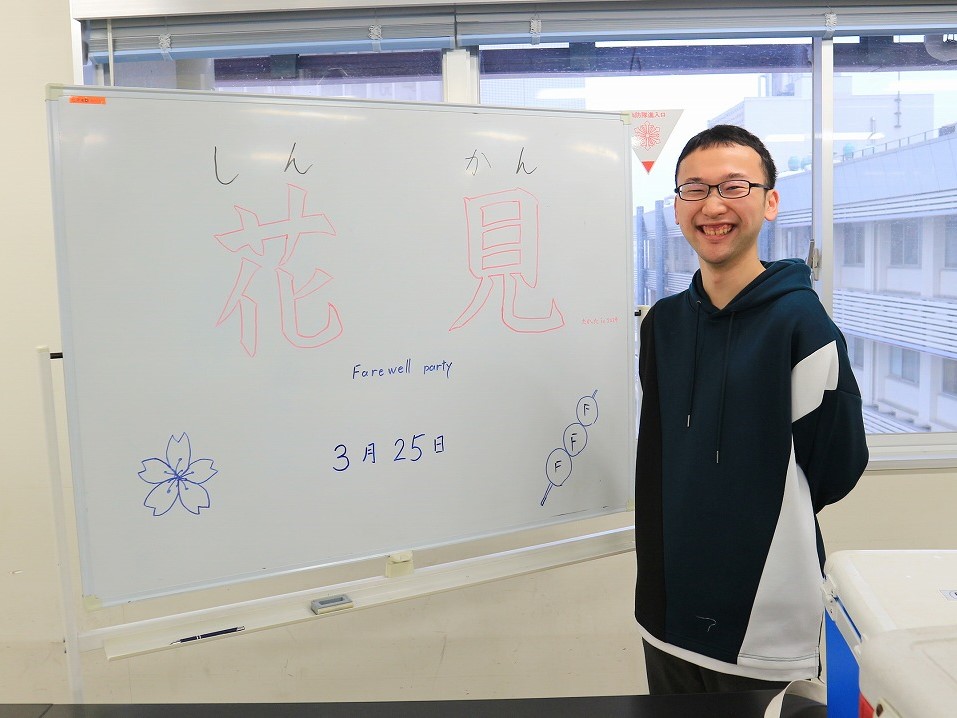 しん かん
花 見
Farewell party
3月25日
F
F
F